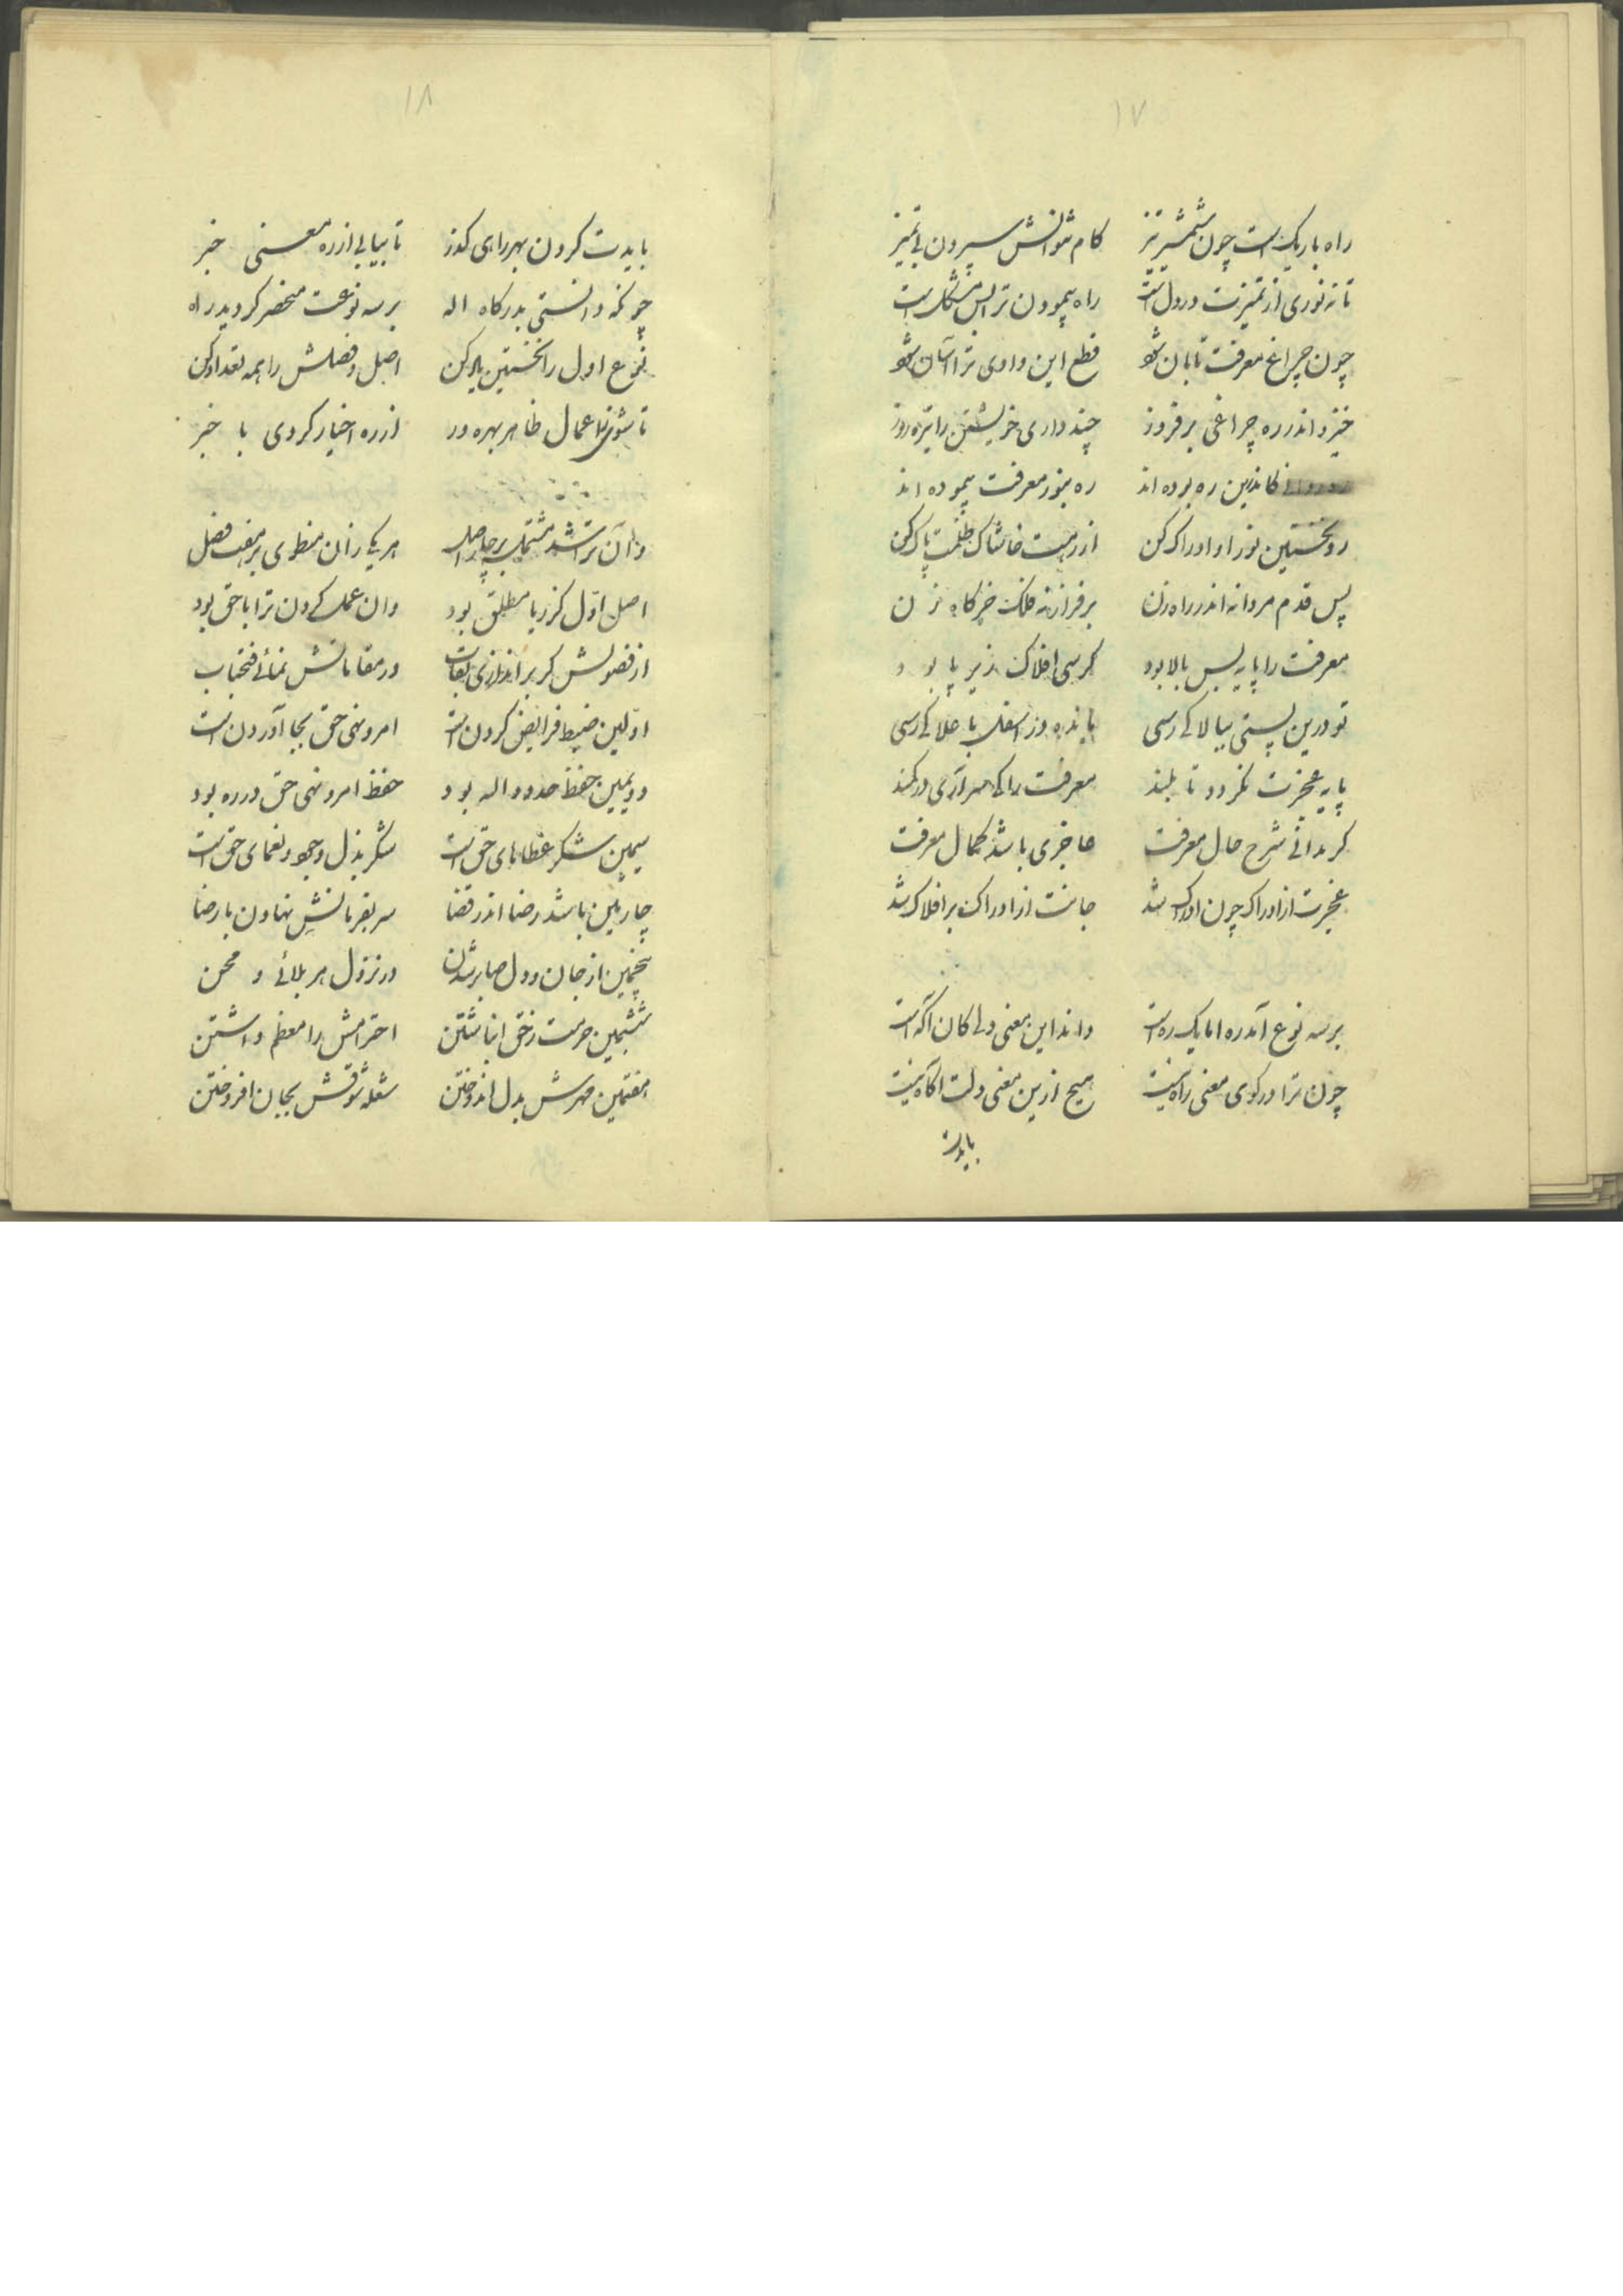 ۱۷
راه باریکست چون شمشیر تیز کام نتوانش سپردن بی تمیز
تا نه نوری از تمیزت در دل است راه پیمودن ترا بس مشکل است
چون چراغ معرفت تابان شود قطع این وادی ترا آسان شود
خیز و اندر ره چراغی برفروز چند داری خویشتن را تیره روز
کاندرین ره بوده اند ره بنور معرفت پیموده اند
رو نخستین نور او ادراک کن از رهت خاشاک ظلمت پاک کن
پس قدم مردانه اندر راه زن بر فراز نه فلک خرگاه زن
معرفت را پایه بس بالا بود کرسی افلاک زیر پا بود
تو درین پستی ببالا کی رسی مانده در اسفل باعلا کی رسی
پایه عجزت نکردد تا بلند معرفت را کی سر آری در کمند
کر بدانی شرح حال معرفت عاجزی باشد کمال معرفت
عجزت از ادراک چون ادراک شد جانت از ادراک بر افلاک شد
بر سه نوع آمد ره اما یک ره است داند این معنی دلی کان آکه است
چون ترا در کوی معنی راه نیست هیچ ازین معنی دلت آکاه نیست
بایدت
۱۸
بایدت کردن بهر راهی کذر تا بیابی از ره معنی خبر
چونکه دانستی بدرکاه اله بر سه نوعت منحصر کردید راه
نوع اول را نخستین یاد کن اصل و فصلش را همه تعداد کن
تا شوی ز اعمال ظاهر بهره ور از ره اخیار کردی با خبر
وان ترا شد مشتمل بر چار اصل هر یکی زان منطوی بر هفت فصل
اصل اول کز ریا مطلق بود وان عمل کردن ترا با حق بود
از فصولش کر براندازی نقاب در مقاماتش نمائی فتحباب
اولین ضبط فرایض کردن است امر و نهی حق بجا آوردن است
دویمین حفظ حدود اله بود حفظ امر و نهی حق در ره بود
سیمین شکر عطاهای حق است شکر بذل وجود و نعمای حق است
چارمین باشد رضا اندر قضا سر بفرمانش نهادن با رضا
پنجمین از جان و دل صابر شدن در نزول هر بلائی و محن
ششمین حرمت ز حق انباشتن احترامش را معظم داشتن
هفتمین مهرش بدل اندوختن شعله شوقش بجان افروختن